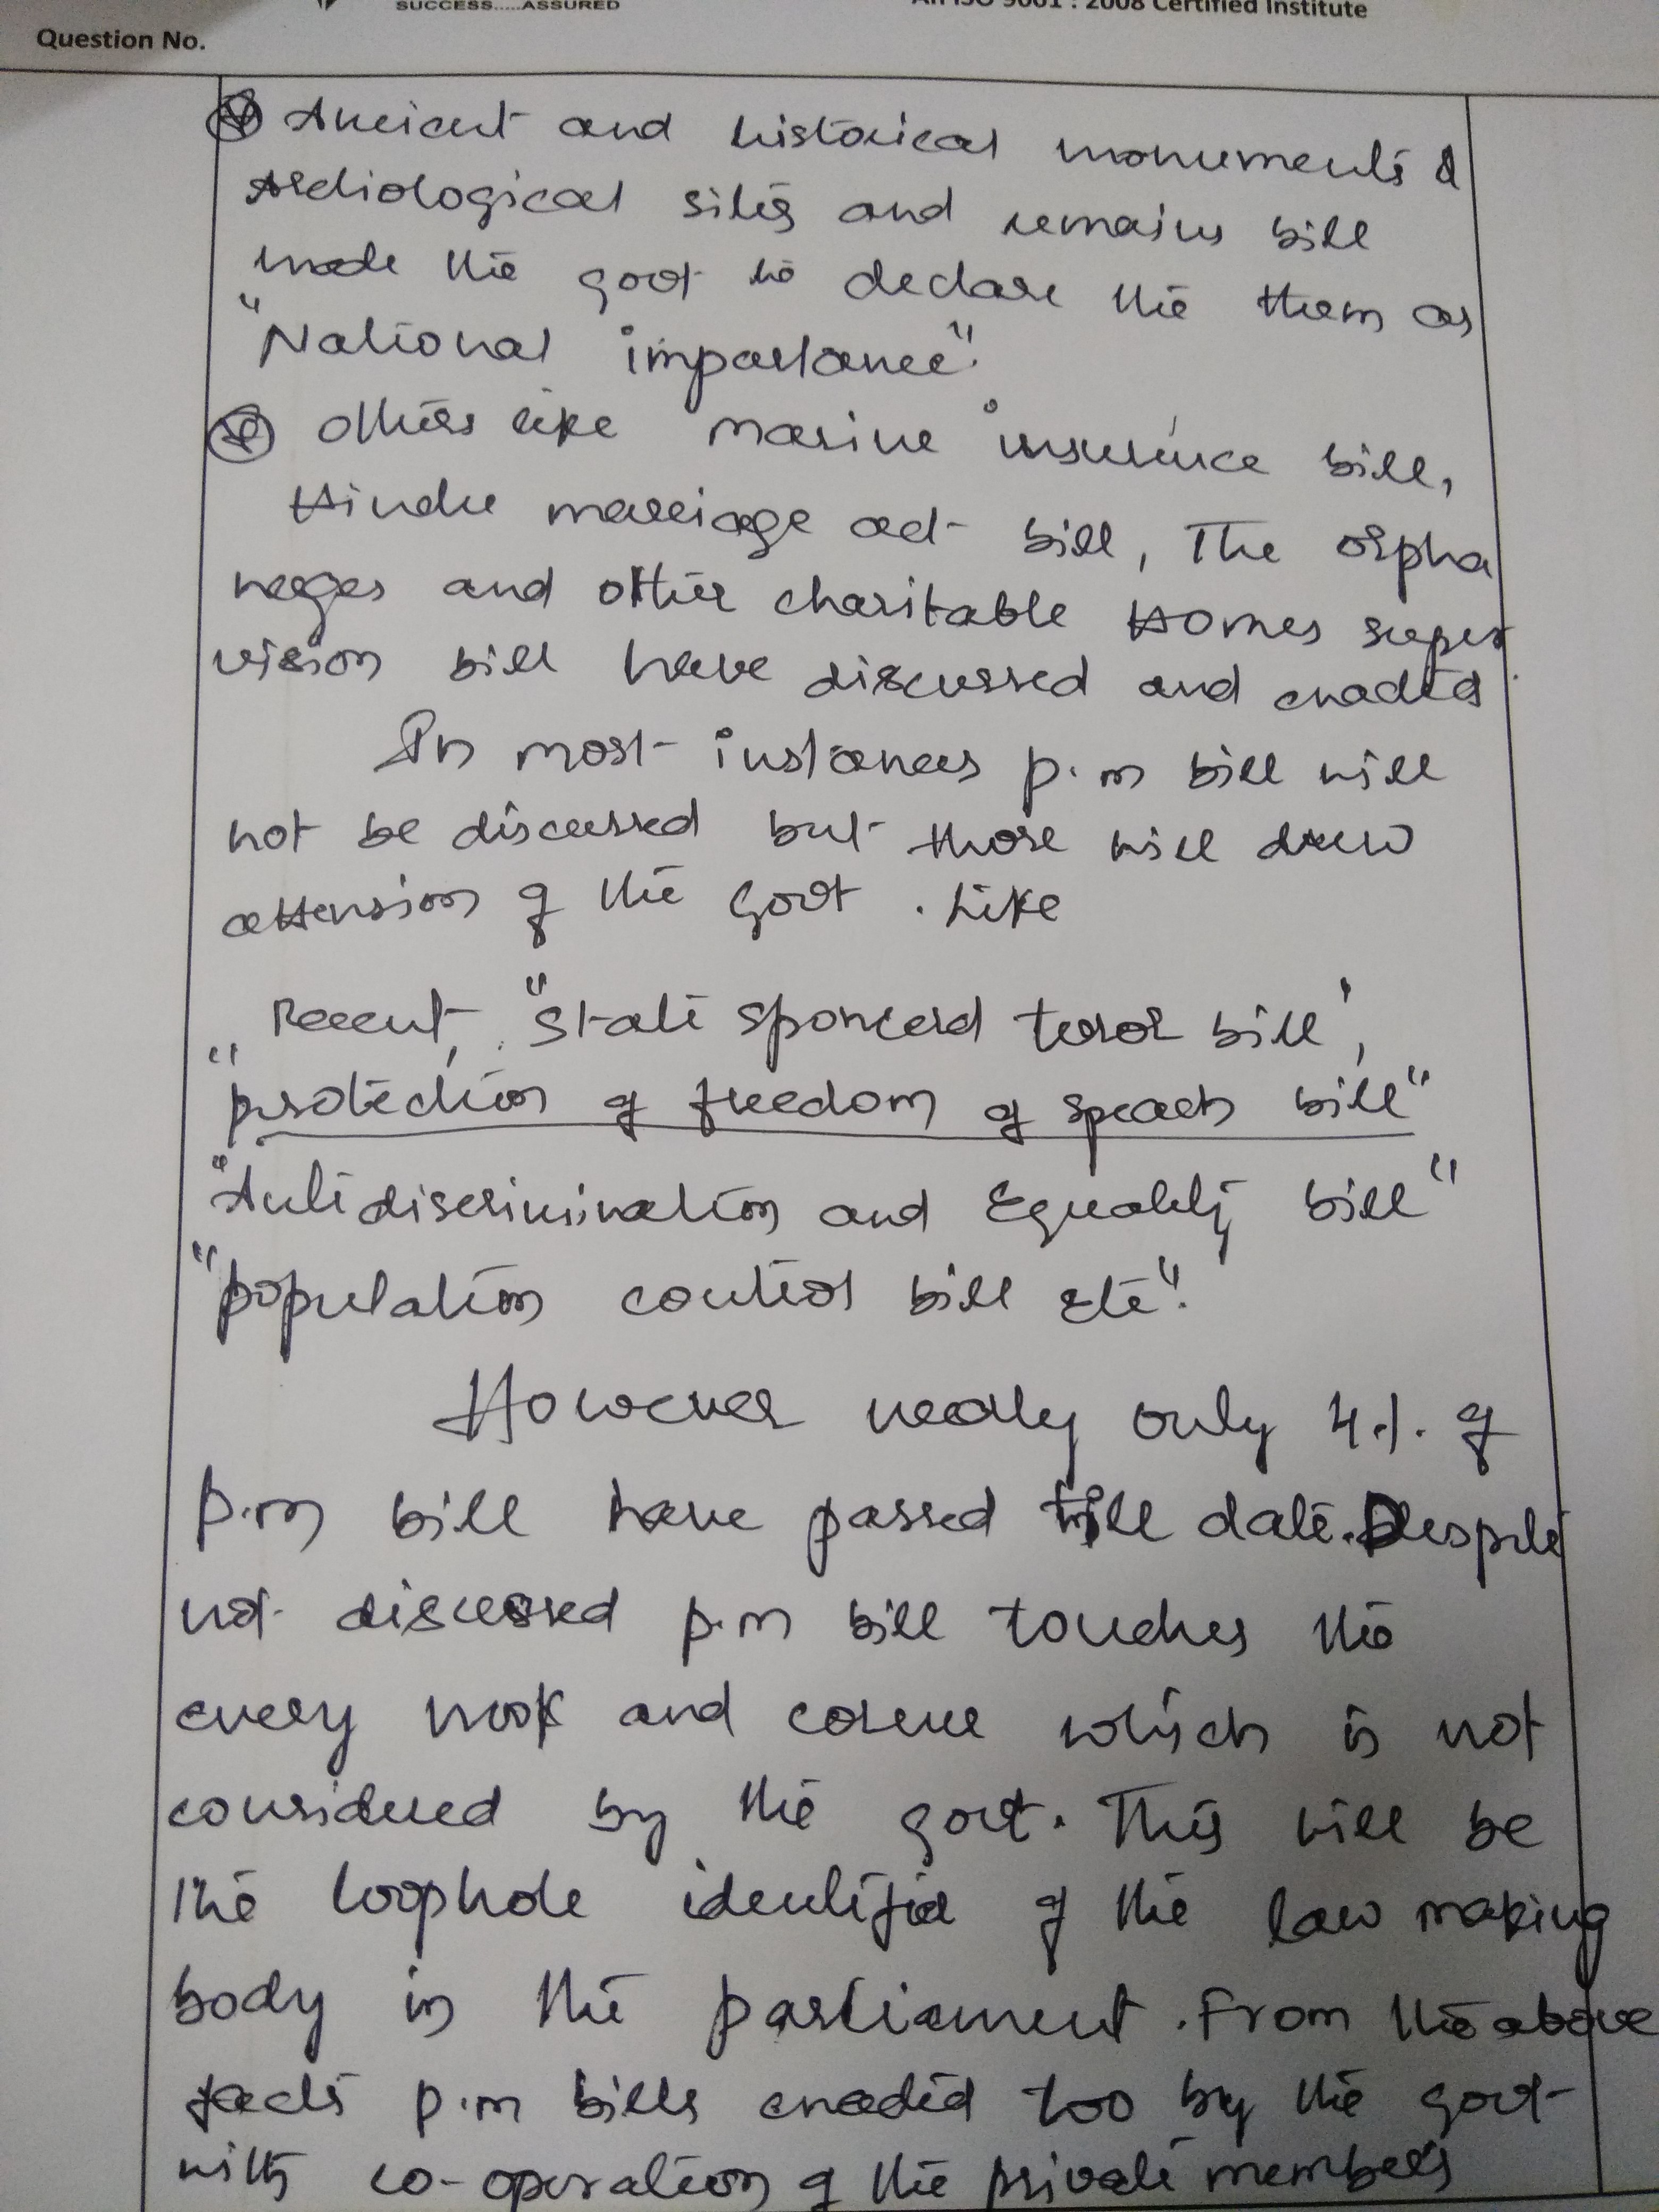 SUCCESS.....ASSURED
An ISO 9001 : 2008 Certified Institute
Question No.
Ancient and historical monuments &
Ardiological sites and remains bill
made the govt to declare the them as
"National importance".
Others like marine insurence bill,
Hindu marriage act bill, The orpha
neges and other charitable Homes super
vision bill have discussed and enacted
In most instances p.m bill will
not be discussed but those will draw
attension of the govt. Like
Recent, "State sponcerd teror bill',
"protection of freedom of speach bill"
"Anti discrimination and Equality bill"
"population control bill etc".
However nearly only 4% of
p.m bill have passed till date. Despite
not discussed p.m bill touches the
every nook and corner which is not
considered by the govt. This will be
the loophole identified of the law making
body in the parliament. From the above
facts p.m bills enacted too by the govt
with co-operation of the private members